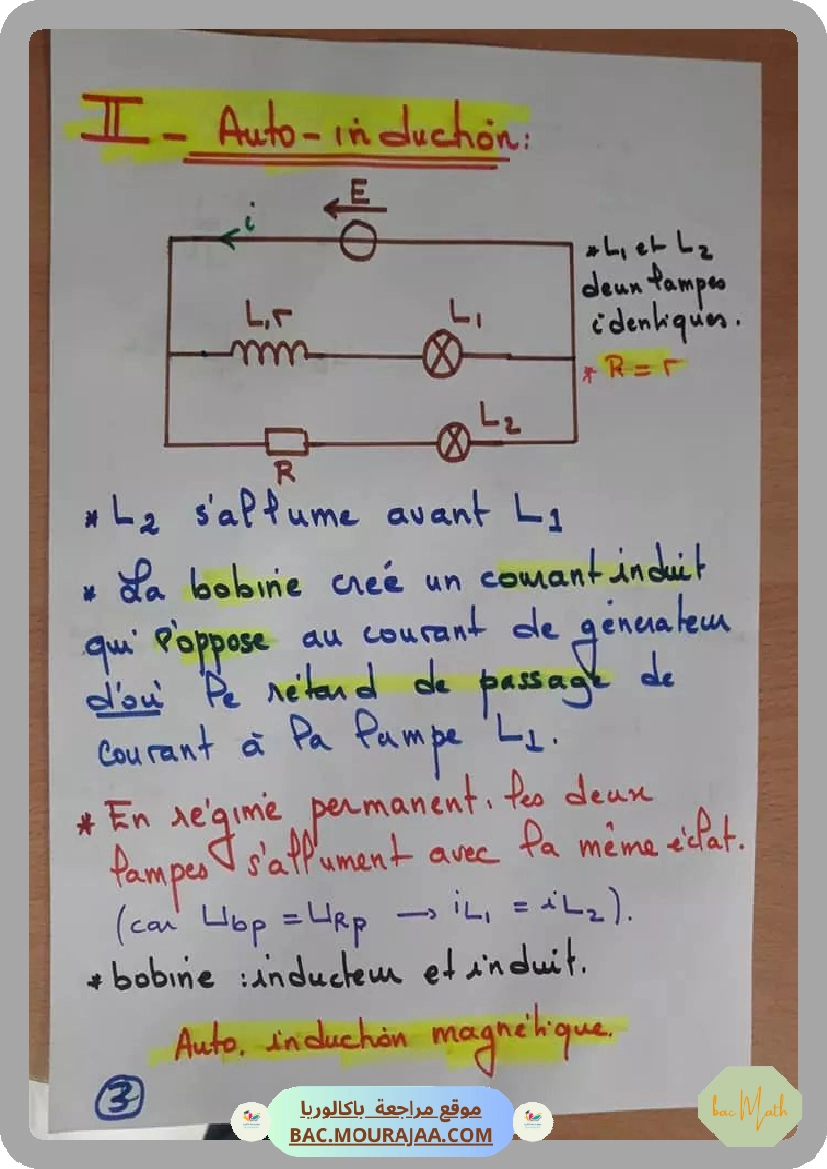 II - Auto-induction:
E
i
L,r
L1
* L1 et L2
deux lampes
identiques.
* R = r
L2
R
* L2 s'allume avant L1
* La bobine creé un courant induit
qui s'oppose au courant de génerateur
d'où le retard de passage de
courant à la lampe L1.
* En régime permanent, les deux
lampes s'allument avec la même éclat.
(car Ubp = URp → iL1 = iL2).
* bobine : inducteur et induit.
Auto. induction magnétique.
3
موقع مراجعة باكالوريا
BAC.MOURAJAA.COM
bac Math